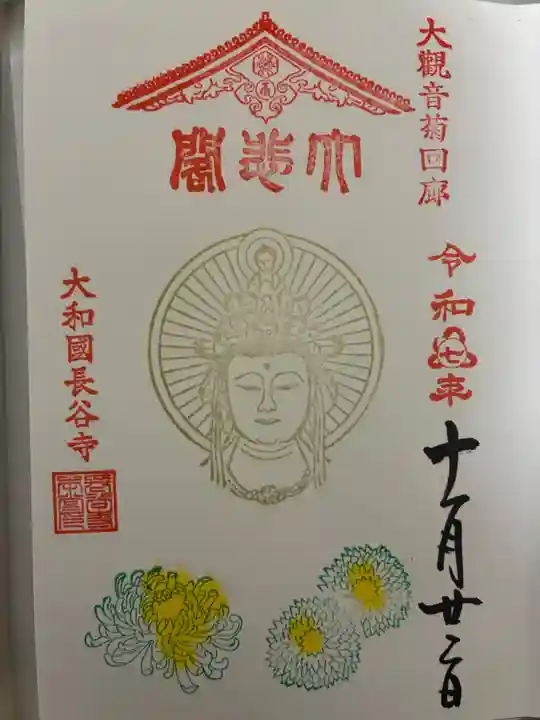 大觀音菊回廊
令和七年
十月廿二日
大悲閣
大和國長谷寺